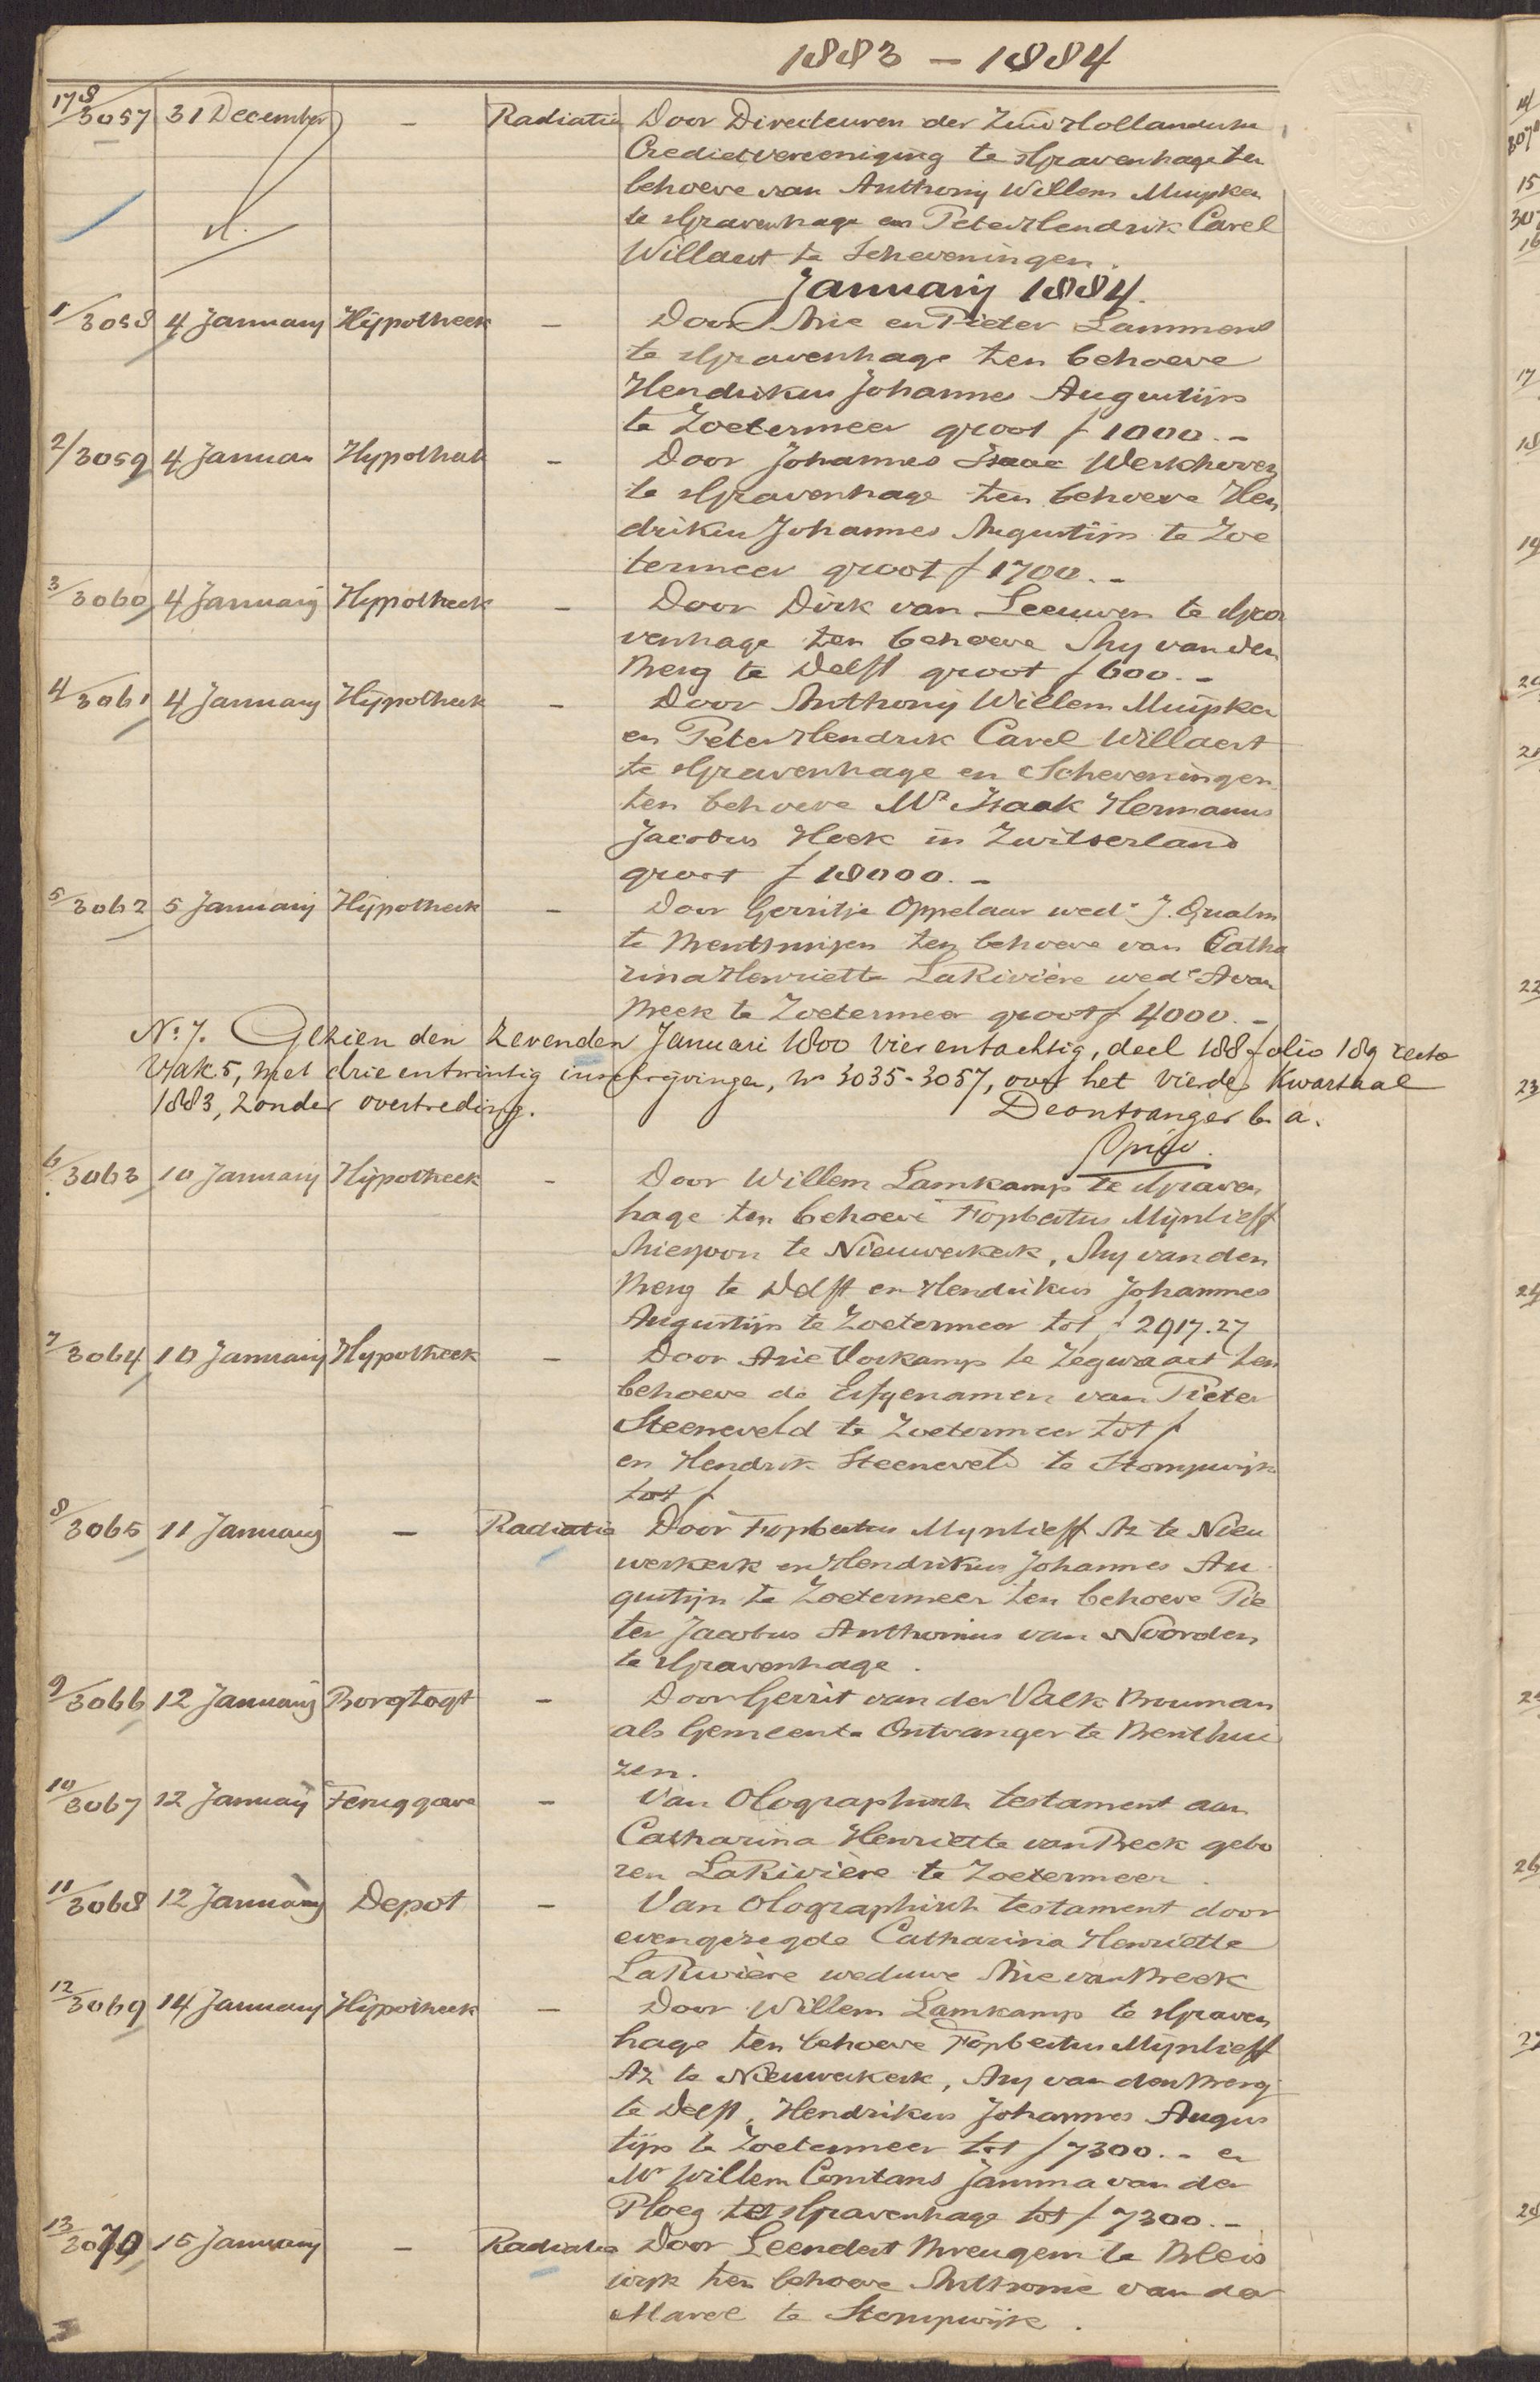 1883 - 1884
178/3057 31 December - Radiatie Door Directeuren der Zuid Hollandsche
Credietvereeniging te sGravenhage ten
behoeve van Anthonij Willem Muijsken
te sGravenhage en Peter Hendrik Carel
Willaert te Scheveningen.
Januarij 1884.
1/3058 4 Januarij Hijpotheek - Door Arie en Pieter Lammens
te sGravenhage ten behoeve
Hendrikus Johannes Augustijn
te Zoetermeer groot f 1000.-
2/3059 4 Januari Hypotheek - Door Johannes Isaac Werkhoven
te sGravenhage ten behoeve Hen
drikus Johannes Augustijn te Zoe
termeer groot f 1700.-
3/3060 4 Januarij Hijpotheek - Door Dirk van Leeuwen te sGra
venhage ten behoeve Ary van den
Berg te Delft groot f 600.-
4/3061 4 Januarij Hijpotheek - Door Anthonij Willem Muijsken
en Peter Hendrik Carel Willaert
te sGravenhage en Scheveningen
ten behoeve Mr Isaak Hermanus
Jacobus Hoek in Zwitserland
groot f 18000.-
5/3062 5 Januarij Hijpotheek - Door Gerritje Oppelaar wede J. Qualm
te Benthuizen ten behoeve van Catha
rina Henriette LaRivière wede A van
Beek te Zoetermeer groot f 4000.-
No 7. Gezien den zevenden Januari 1800 vier en tachtig, deel 188 folio 189 recto
Vak 5, met drie en twintig inschrijvingen, no 3035-3057, over het vierde Kwartaal
1883, zonder overtreding. De ontvanger b. a.
6/3063 10 Januarij Hijpotheek - Door Willem Lamkamp te sGraven
hage ten behoeve Fopbertus Mijnlieff
te Nieuwerkerk, Ary van den
Berg te Delft en Hendrikus Johannes
Augustijn te Zoetermeer tot f 2917.27
7/3064 10 Januarij Hypotheek - Door Arie Voskamp te Zegwaart ten
behoeve de Erfgenamen van Pieter
Steeneveld te Zoetermeer tot f
en Hendrik Steeneveld te Stompwijk
tot f
8/3065 11 Januarij - Radiatie Door Fopbertus Mijnlieff Az te Nieu
werkerk en Hendrikus Johannes Au
gustijn te Zoetermeer ten behoeve Pie
ter Jacobus Anthonius van Noorden
te sGravenhage.
9/3066 12 Januarij Borgtogt - Door Gerrit van der Valk Bouman
als Gemeente Ontvanger te Benthui
zen.
10/3067 12 Januarij Teruggave - Van Olographisch testament aan
Catharina Henriette van Beek gebo
ren LaRivière te Zoetermeer.
11/3068 12 Januarij Depot - Van Olographisch testament door
evengezegde Catharina Henriette
LaRivière weduwe Arie van Beek
12/3069 14 Januarij Hijpotheek - Door Willem Lamkamp te sGraven
hage ten behoeve Fopbertus Mijnlieff
Az te Nieuwerkerk, Ary van den Berg
te Delft, Hendrikus Johannes Augus
tijn te Zoetermeer tot f 7300.- en
Mr Willem Constans Jamma van der
Ploeg te sGravenhage tot f 7300.-
13/3070 15 Januarij - Radiatie Door Leendert Breugem te Bleis
wijk ten behoeve Anthonie van der
Marel te Stompwijk.